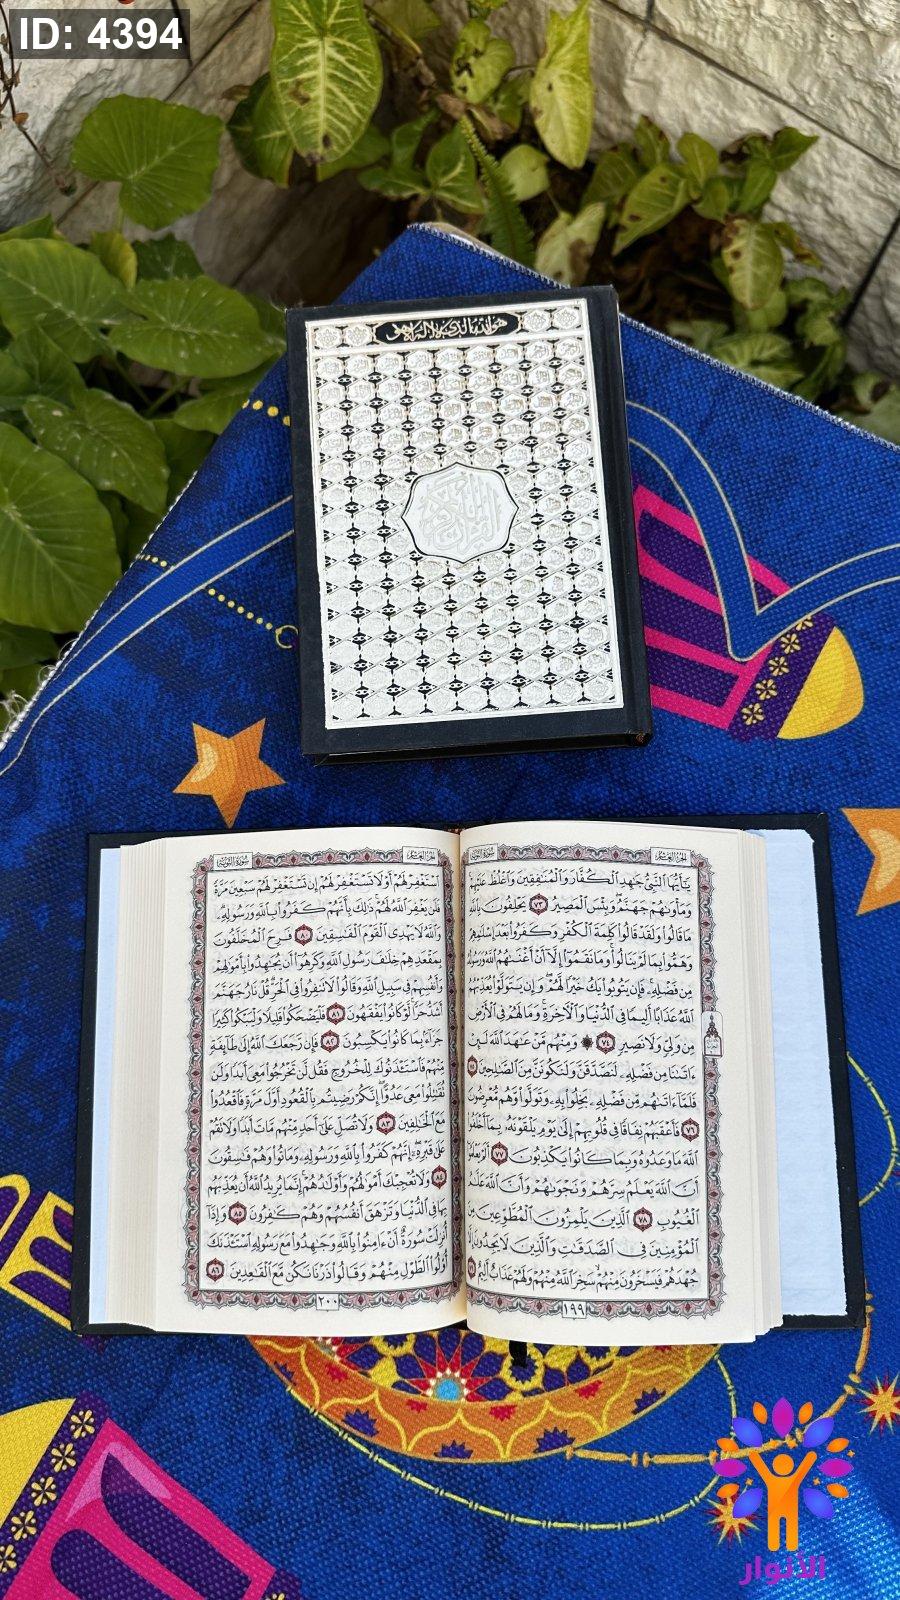 ID: 4394
هو الله الذي لا إله إلا هو
القرآن الكريم
الجزء العاشر
سورة التوبة
يَٰٓأَيُّهَا ٱلنَّبِىُّ جَٰهِدِ ٱلْكُفَّارَ وَٱلْمُنَٰفِقِينَ وَٱغْلُظْ عَلَيْهِمْ
وَمَأْوَىٰهُمْ جَهَنَّمُ وَبِئْسَ ٱلْمَصِيرُ ٧٣ يَحْلِفُونَ بِٱللَّهِ
مَا قَالُوا۟ وَلَقَدْ قَالُوا۟ كَلِمَةَ ٱلْكُفْرِ وَكَفَرُوا۟ بَعْدَ إِسْلَٰمِهِمْ
وَهَمُّوا۟ بِمَا لَمْ يَنَالُوا۟ وَمَا نَقَمُوٓا۟ إِلَّآ أَنْ أَغْنَىٰهُمُ ٱللَّهُ وَرَسُولُهُۥ
مِن فَضْلِهِۦ فَإِن يَتُوبُوا۟ يَكُ خَيْرًا لَّهُمْ وَإِن يَتَوَلَّوْا۟ يُعَذِّبْهُمُ
ٱللَّهُ عَذَابًا أَلِيمًا فِى ٱلدُّنْيَا وَٱلْءَاخِرَةِ وَمَا لَهُمْ فِى ٱلْأَرْضِ
مِن وَلِىٍّ وَلَا نَصِيرٍ ٧٤ ۞ وَمِنْهُم مَّنْ عَٰهَدَ ٱللَّهَ لَئِنْ
ءَاتَىٰنَا مِن فَضْلِهِۦ لَنَصَّدَّقَنَّ وَلَنَكُونَنَّ مِنَ ٱلصَّٰلِحِينَ ٧٥
فَلَمَّآ ءَاتَىٰهُم مِّن فَضْلِهِۦ بَخِلُوا۟ بِهِۦ وَتَوَلَّوا۟ وَّهُم مُّعْرِضُونَ
٧٦ فَأَعْقَبَهُمْ نِفَاقًا فِى قُلُوبِهِمْ إِلَىٰ يَوْمِ يَلْقَوْنَهُۥ بِمَآ أَخْلَفُوا۟
ٱللَّهَ مَا وَعَدُوهُ وَبِمَا كَانُوا۟ يَكْذِبُونَ ٧٧ أَلَمْ يَعْلَمُوٓا۟
أَنَّ ٱللَّهَ يَعْلَمُ سِرَّهُمْ وَنَجْوَىٰهُمْ وَأَنَّ ٱللَّهَ عَلَّٰمُ
ٱلْغُيُوبِ ٧٨ ٱلَّذِينَ يَلْمِزُونَ ٱلْمُطَّوِّعِينَ مِنَ
ٱلْمُؤْمِنِينَ فِى ٱلصَّدَقَٰتِ وَٱلَّذِينَ لَا يَجِدُونَ إِلَّا
جُهْدَهُمْ فَيَسْخَرُونَ مِنْهُمْ سَخِرَ ٱللَّهُ مِنْهُمْ وَلَهُمْ عَذَابٌ أَلِيمٌ ٧٩
١٩٩
الجزء العاشر
سورة التوبة
ٱسْتَغْفِرْ لَهُمْ أَوْ لَا تَسْتَغْفِرْ لَهُمْ إِن تَسْتَغْفِرْ لَهُمْ سَبْعِينَ مَرَّةً
فَلَن يَغْفِرَ ٱللَّهُ لَهُمْ ذَٰلِكَ بِأَنَّهُمْ كَفَرُوا۟ بِٱللَّهِ وَرَسُولِهِۦ
وَٱللَّهُ لَا يَهْدِى ٱلْقَوْمَ ٱلْفَٰسِقِينَ ٨٠ فَرِحَ ٱلْمُخَلَّفُونَ
بِمَقْعَدِهِمْ خِلَٰفَ رَسُولِ ٱللَّهِ وَكَرِهُوٓا۟ أَن يُجَٰهِدُوا۟ بِأَمْوَٰلِهِمْ
وَأَنفُسِهِمْ فِى سَبِيلِ ٱللَّهِ وَقَالُوا۟ لَا تَنفِرُوا۟ فِى ٱلْحَرِّ قُلْ نَارُ جَهَنَّمَ
أَشَدُّ حَرًّا لَّوْ كَانُوا۟ يَفْقَهُونَ ٨١ فَلْيَضْحَكُوا۟ قَلِيلًا وَلْيَبْكُوا۟ كَثِيرًا
جَزَآءًۢ بِمَا كَانُوا۟ يَكْسِبُونَ ٨٢ فَإِن رَّجَعَكَ ٱللَّهُ إِلَىٰ طَآئِفَةٍ
مِّنْهُمْ فَٱسْتَـْٔذَنُوكَ لِلْخُرُوجِ فَقُل لَّن تَخْرُجُوا۟ مَعِىَ أَبَدًا وَلَن
تُقَٰتِلُوا۟ مَعِىَ عَدُوًّا إِنَّكُمْ رَضِيتُم بِٱلْقُعُودِ أَوَّلَ مَرَّةٍ فَٱقْعُدُوا۟
مَعَ ٱلْخَٰلِفِينَ ٨٣ وَلَا تُصَلِّ عَلَىٰٓ أَحَدٍ مِّنْهُم مَّاتَ أَبَدًا وَلَا تَقُمْ
عَلَىٰ قَبْرِهِۦٓ إِنَّهُمْ كَفَرُوا۟ بِٱللَّهِ وَرَسُولِهِۦ وَمَاتُوا۟ وَهُمْ فَٰسِقُونَ
٨٤ وَلَا تُعْجِبْكَ أَمْوَٰلُهُمْ وَأَوْلَٰدُهُمْ إِنَّمَا يُرِيدُ ٱللَّهُ أَن يُعَذِّبَهُم
بِهَا فِى ٱلدُّنْيَا وَتَزْهَقَ أَنفُسُهُمْ وَهُمْ كَٰفِرُونَ ٨٥ وَإِذَآ
أُنزِلَتْ سُورَةٌ أَنْ ءَامِنُوا۟ بِٱللَّهِ وَجَٰهِدُوا۟ مَعَ رَسُولِهِ ٱسْتَـْٔذَنَكَ
أُو۟لُوا۟ ٱلطَّوْلِ مِنْهُمْ وَقَالُوا۟ ذَرْنَا نَكُن مَّعَ ٱلْقَٰعِدِينَ ٨٦
٢٠٠
الأنوار